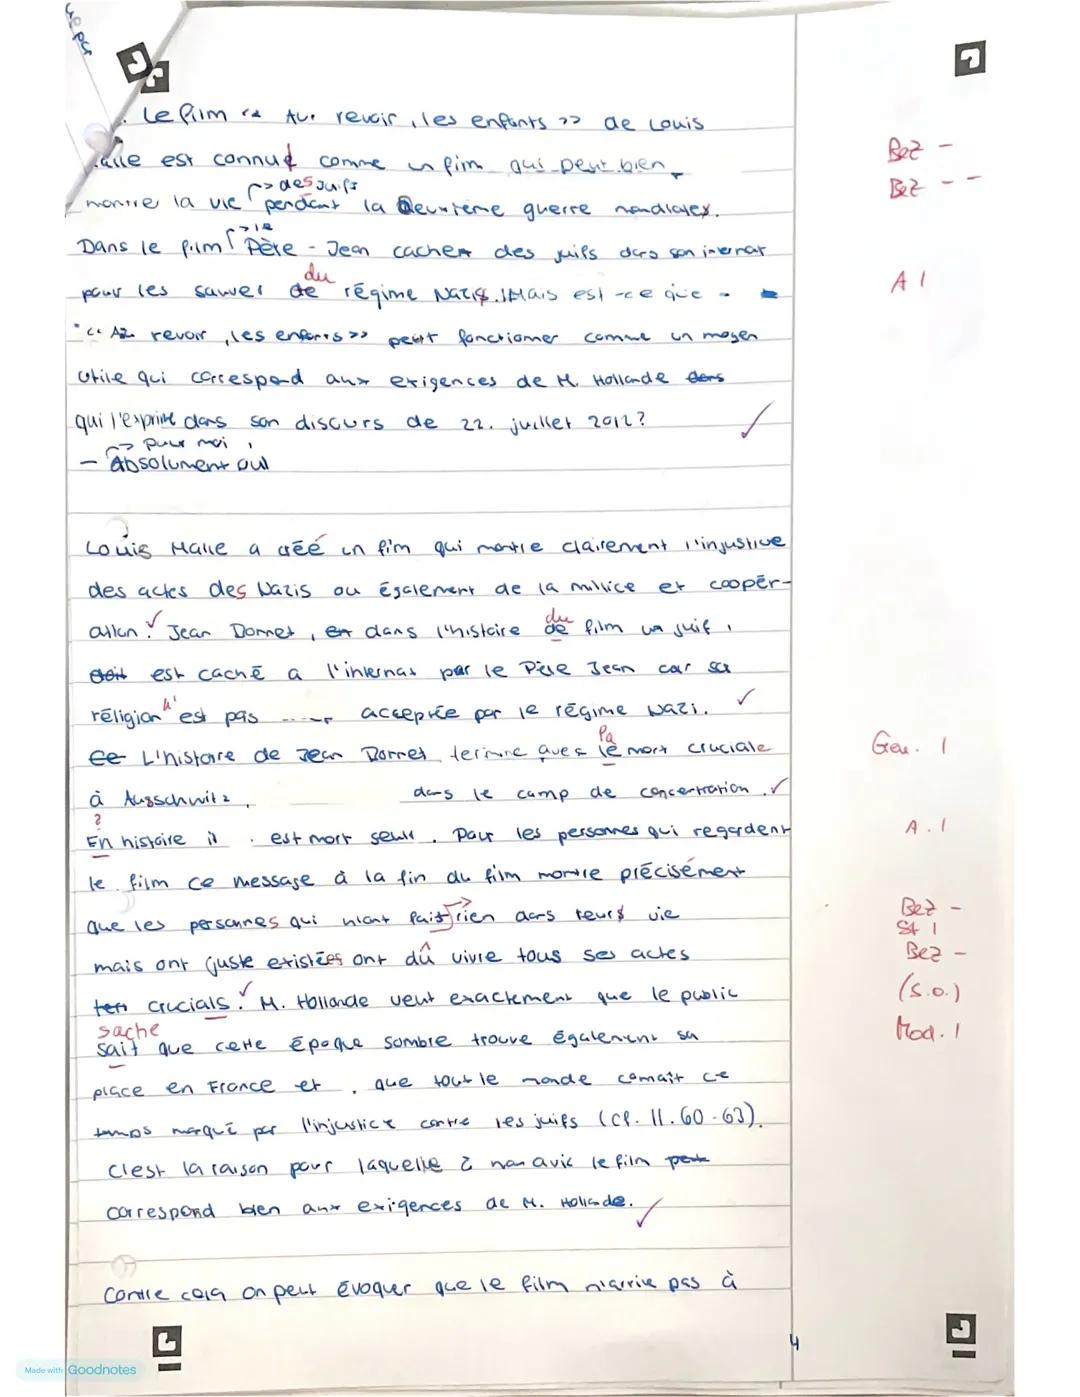 Le film << Au revoir, les enfants >> de Louis
Malle est connu comme un fim qui peut bien
↱> des juifs
montre la vie pendant la Deuxième guerre mondiales.
↱> le
Dans le film Père - Jean cacher des juifs dans son internat
du
pour les sauver de régime Nazis. Mais est-ce que
<< Au revoir, les enfants >> peut fonctionner comme un moyen
utile qui correspond aux exigences de M. Hollande dans
qui l'exprime dans son discurs de 22. juillet 2012? ✓
↱> pour moi,
- Absolument oui
Louis Malle a créé un fim qui montre clairement l'injustice
des actes des Nazis ou également de la millice et coopér-
ation. ✓ Jean Bonnet, en dans l'histoire de film un juif,
du
est caché a l'internat par le Père Jean car sa
réligion n'est pas acceptée par le régime Nazi. ✓
Ce L'histoire de Jean Bonnet termine avec le mort cruciale
la
à Ausschwitz, dans le camp de concentration. ✓
?
En histoire il est mort seult. Pour les personnes qui regardent
le film ce message à la fin du film montre précisément
que les personnes qui n'ont fait rien dans leurs vie
mais ont juste existées ont dû vivre tous ses actes
crucials. ✓ M. Hollande veut exactement que le public
sache
sait que cette époque sombre trouve également sa
place en France et que tout le monde connaît ce
temps marqué par l'injustice contre les juifs (cf. ll. 60-63).
C'est la raison pour laquelle à mon avis le film peut
correspond bien aux exigences de M. Hollande. ✓
Contre cela on peut évoquer que le film n'arrive pas à
Bez -
Bez - -
A 1
Gen. 1
A. 1
Bez -
St 1
Bez -
(s.o.)
Mod. 1
4
Made with Goodnotes